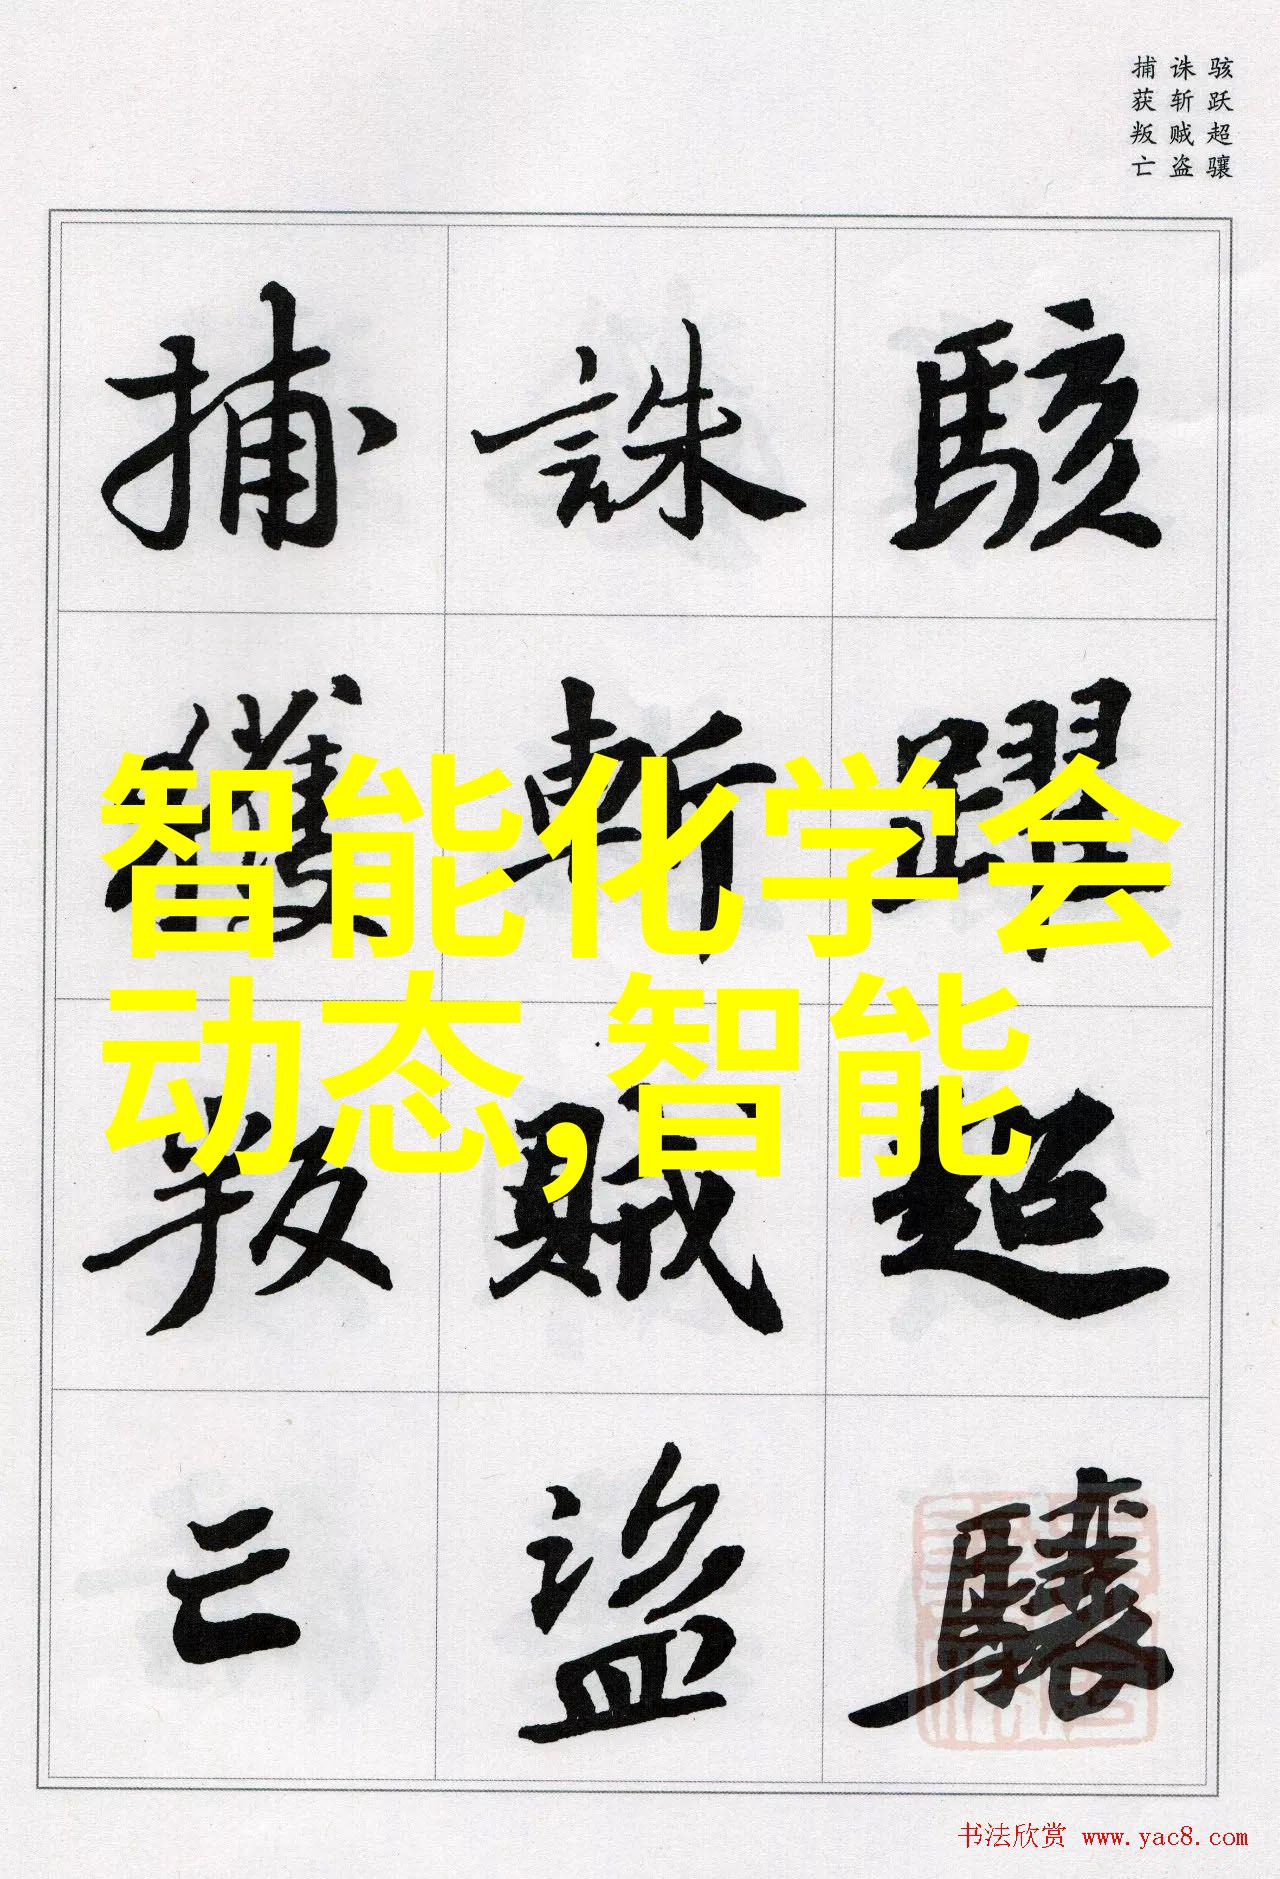 骇跃超骧
诛斩贼盗
捕获叛亡
駭躍超驤
誅斬賊盜
捕獲叛亡
智能化学会
动态,智能
书法欣赏 www.yac8.com